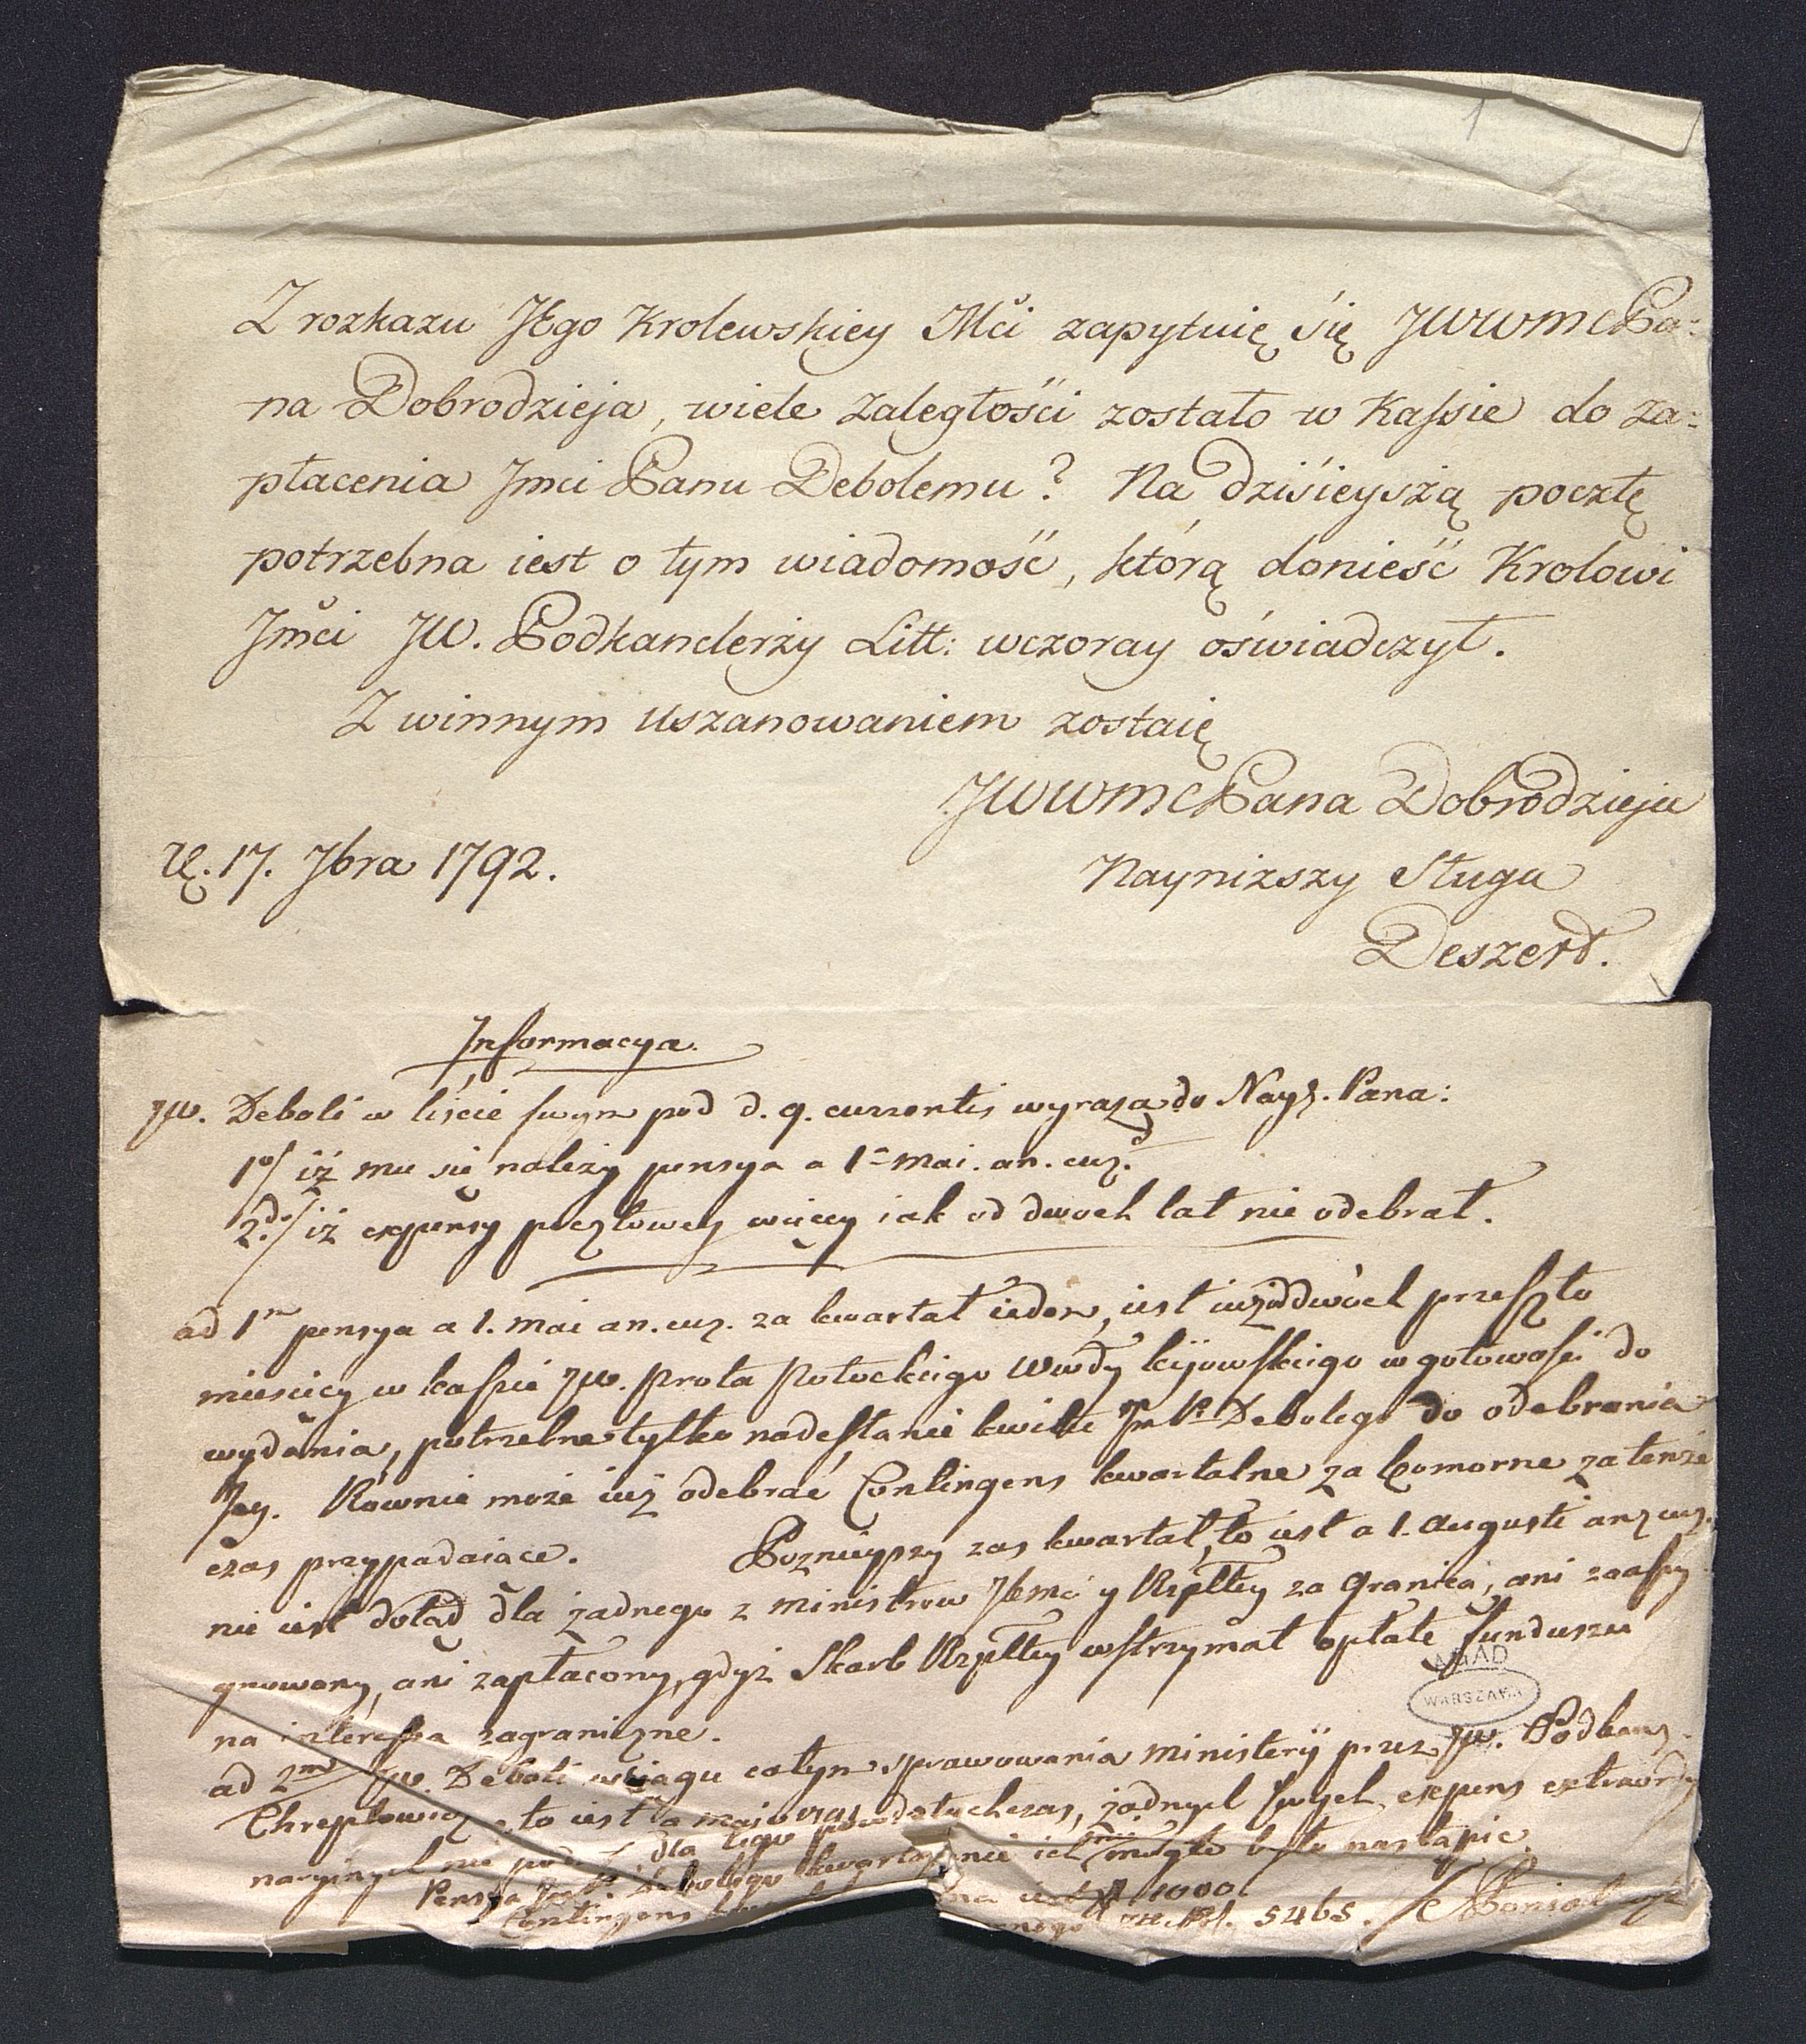 1
Z rozkazu JEgo Krolewskiey Mći zapytuię się JWWMCPa:
na Dobrodzieja, wiele zaległości zostało w Kassie do za:
płacenia Jmci Panu Debolemu? Na dzisieyszą pocztę
potrzebna iest o tym wiadomość, którą donieść Krolowi
Jmći JW. Podkanclerzy Litt: wczoray oświadczył.
Z winnym uszanowaniem zostaię
JWWMCPana Dobrodzieja
17. 7bra 1792.
Naynizszy Sługa
Deszert.
Informacya.
JW. Deboli w liście swym pod d. 9. currentis wyraza do Nayj. Pana:
1o/ iż mu się należy pensya a 1a mai. an. cur.
2do/ iż expensy pocztowey więcy iak od dwoch lat nie odebrał.
ad 1m pensya a 1. mai an. cur. za kwartał ieden, iest iuż od dwóch przeszło
miesięcy w kassie JW. Prota Potockiego Wwdy kijowskiego w gotowości do
wydania, potrzebne tylko nadesłanie kwitu Jm P. Debolego do odebrania
Jey. Rownie może iuż odebrać Contingens kwartalne za komorne za tenże
czas przypadaiące. Poznieyszy zas kwartał, to iest a 1. Augusti an. cur.
nie iest dotąd dla żadnego z ministrow JKmci y Rzpltey za Granicą, ani zaassy
gnowany, ani zapłacony, gdyż Skarb Rzpltey wstrzymał opłatę funduszu
na interessa zagraniczne.
AGAD
WARSZAWA
ad 2m JW. Deboli w ciągu całym sprawowania ministerij przez JW. Podkanz.
Chreptowicza, to iest a maio dotychczas, żadnych swych expens extraordy
naryinych nie dla tego nie ich mogło było nastąpić
Pensya Debolego kwartalna iest # 1000.
Contingens Zł. Pol. 5465.